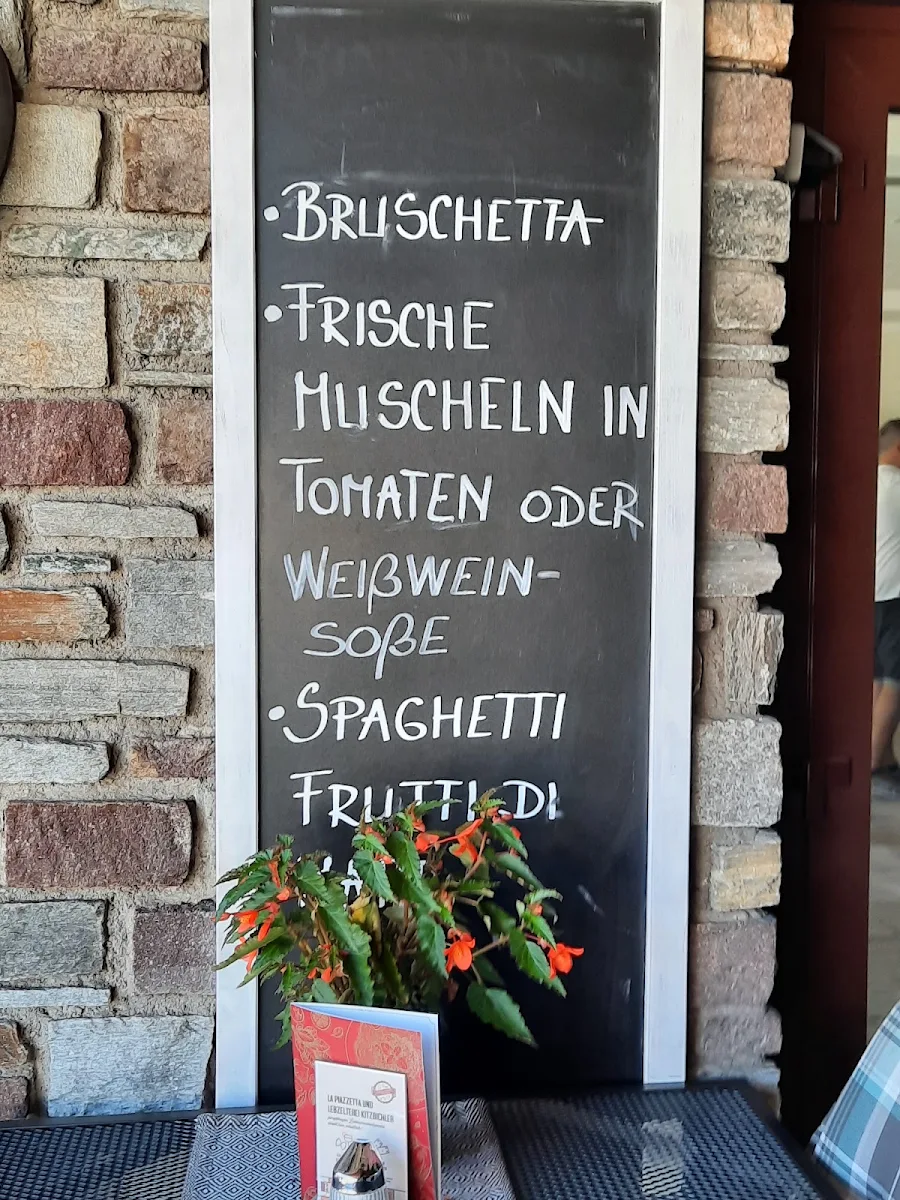 • BRUSCHETTA
• FRISCHE
MUSCHELN IN
TOMATEN ODER
WEIßWEIN-
SOßE
• SPAGHETTI
FRUTTI DI
LA PIAZZETTA UND
LEBZELTEREI KITZBICHLER